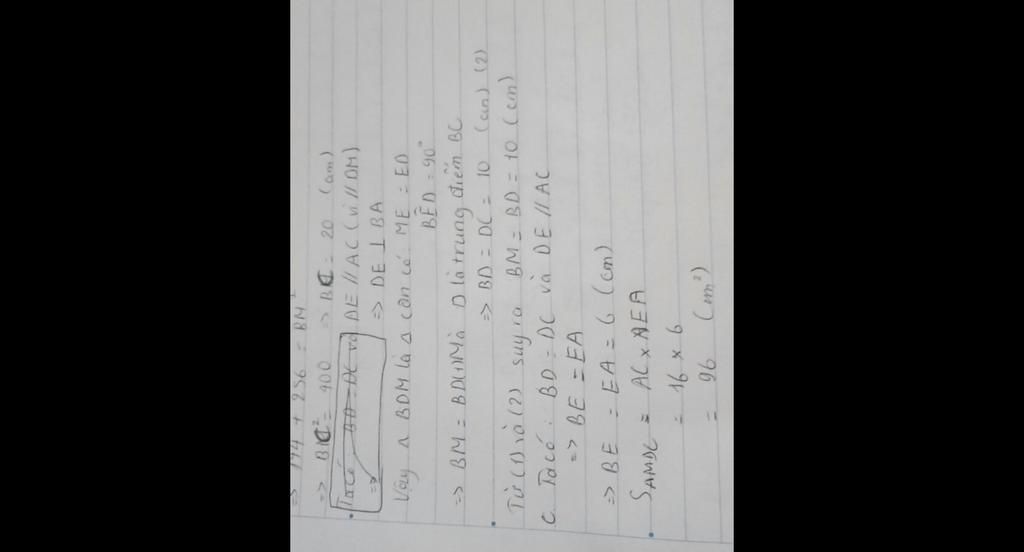 => 144 + 256 = BM²
=> BC² = 400 => BC = 20 (cm)
Ta có BD = DC và DE // AC (vì // DM)
=>
=> DE ⊥ BA
Vậy Δ BDM là Δ cân có: ME = ED
BÊD = 90°
=> BM = BD (1) Mà D là trung điểm BC
=> BD = DC = 10 (cm) (2)
Từ (1) và (2) suy ra BM = BD = 10 (cm)
c. Ta có: BD = DC và DE // AC
=> BE = EA
=> BE = EA = 6 (cm)
SAMDC = AC x AEA
= 16 x 6
= 96 (cm²)